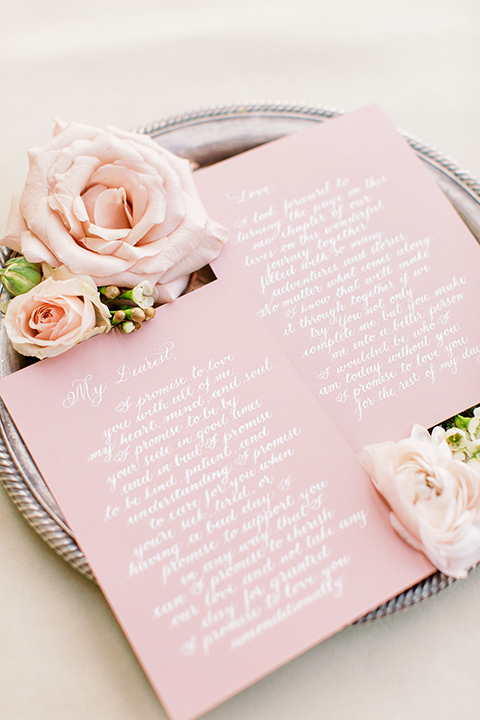 My Dearest,
I promise to love
you with all of me
my heart, mind, and soul
I promise to be by
your side in good times
and in bad I promise
to be kind, patient and
understanding I promise
to care for you when
you're sick, tired, or
having a bad day I
promise to support you
in any way that I
can I promise to cherish
our love and not take any
day for granted
I promise to love you
unconditionally
Love,
I look forward to
turning the page in this
new chapter of our
lives on this wonderful
journey together
filled with so many
adventures and stories
No matter what comes along
I know that we'll make
it through together if we
try You not only
complete me but you make
me into a better person
I wouldn't be who I
am today without you
I promise to love you
for the rest of my day